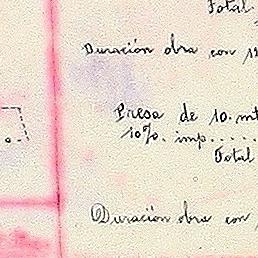 Total
Duración obra con 12
Presa de 10. mt
10%. imp.....
Total
Duración obra con